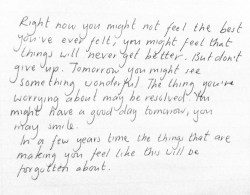 Right now you might not feel the best
you've ever felt, you might feel that
things will never get better. But don't
give up. Tomorrow you might see
something wonderful. The thing you're
worrying about may be resolved. You
might have a good day tomorrow, you
may smile.
In a few years time, the things that are
making you feel like this will be
forgotten about.